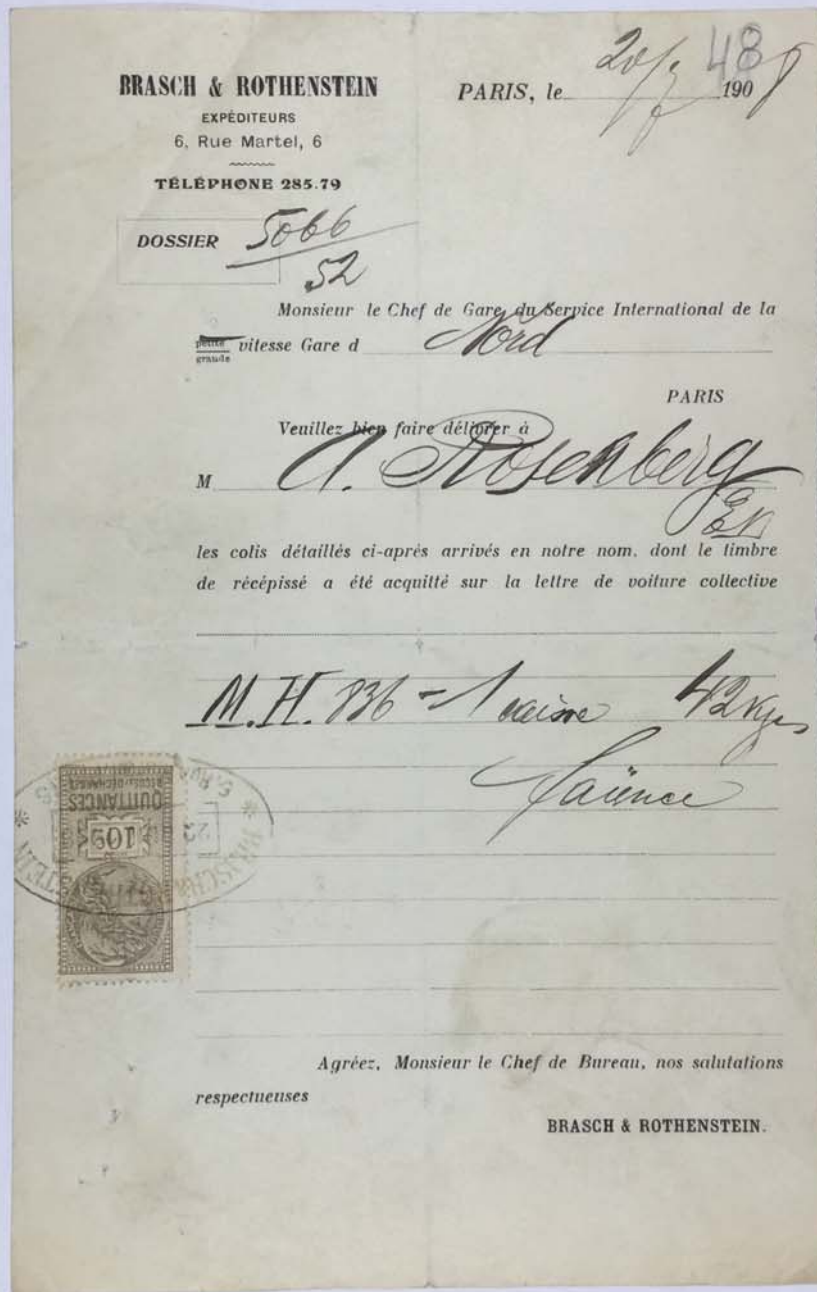 48
BRASCH & ROTHENSTEIN
EXPÉDITEURS
6, Rue Martel, 6
TÉLÉPHONE 285.79
PARIS, le 20/ 1908
DOSSIER 5066
52
Monsieur le Chef de Gare du Service International de la
petite
grande vitesse Gare d Nord
PARIS
Veuillez bien faire délivrer à
M A. Rosenberg
les colis détaillés ci-après arrivés en notre nom, dont le timbre
de récépissé a été acquitté sur la lettre de voiture collective
M.H. 836 - 1 caisse 42 Kgs
faïence
QUITTANCES
REÇUS & DÉCHARGES
10c
Agréez, Monsieur le Chef de Bureau, nos salutations
respectueuses
BRASCH & ROTHENSTEIN.